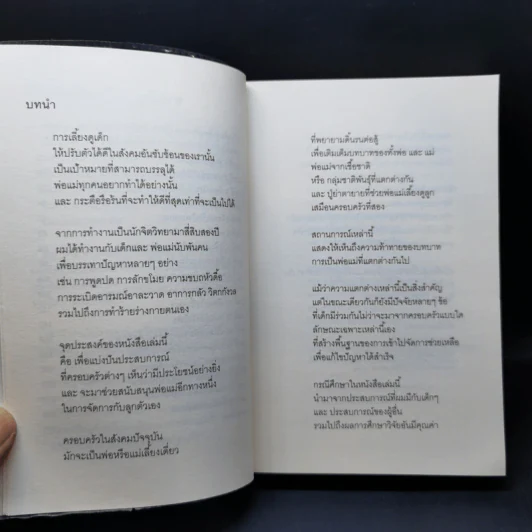 บทนำ
การเลี้ยงดูเด็ก
ให้ปรับตัวได้ดีในสังคมอันซับซ้อนของเรานั้น
เป็นเป้าหมายที่สามารถบรรลุได้
พ่อแม่ทุกคนอยากทำได้อย่างนั้น
และ กระตือรือร้นที่จะทำให้ดีที่สุดเท่าที่จะเป็นไปได้
จากการทำงานเป็นนักจิตวิทยามาสี่สิบสองปี
ผมได้ทำงานกับเด็กและ พ่อแม่นับพันคน
เพื่อบรรเทาปัญหาหลายๆ อย่าง
เช่น การพูดปด การลักขโมย ความขบถหัวดื้อ
การระเบิดอารมณ์อาละวาด อาการกลัว วิตกกังวล
รวมไปถึงการทำร้ายร่างกายตนเอง
จุดประสงค์ของหนังสือเล่มนี้
คือ เพื่อแบ่งปันประสบการณ์
ที่ครอบครัวต่างๆ เห็นว่ามีประโยชน์อย่างยิ่ง
และ จะมาช่วยสนับสนุนพ่อแม่อีกทางหนึ่ง
ในการจัดการกับลูกตัวเอง
ครอบครัวในสังคมปัจจุบัน
มักจะเป็นพ่อหรือแม่เลี้ยงเดี่ยว
ที่พยายามดิ้นรนต่อสู้
เพื่อเติมเต็มบทบาทของทั้งพ่อ และ แม่
พ่อแม่จากเชื้อชาติ
หรือ กลุ่มชาติพันธุ์ที่แตกต่างกัน
และ ปู่ย่าตายายที่ช่วยพ่อแม่เลี้ยงดูลูก
เสมือนครอบครัวที่สอง
สถานการณ์เหล่านี้
แสดงให้เห็นถึงความท้าทายของบทบาท
การเป็นพ่อแม่ที่แตกต่างกันไป
แม้ว่าความแตกต่างเหล่านี้เป็นสิ่งสำคัญ
แต่ในขณะเดียวกันก็ยังมีปัจจัยหลายๆ ข้อ
ที่เด็กมีร่วมกันไม่ว่าจะมาจากครอบครัวแบบใด
ลักษณะเฉพาะเหล่านี้เอง
ที่สร้างพื้นฐานของการเข้าไปจัดการช่วยเหลือ
เพื่อแก้ไขปัญหาได้สำเร็จ
กรณีศึกษาในหนังสือเล่มนี้
นำมาจากประสบการณ์ที่ผมมีกับเด็กๆ
และ ประสบการณ์ของผู้อื่น
รวมไปถึงผลการศึกษาวิจัยอันมีคุณค่า